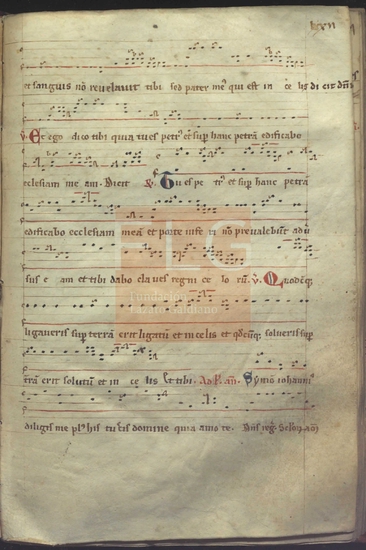 lxvii
et sanguis nō revelavit tibi sed pater me' qui est in ce lis dicit dn̄s
v. Et ego dico tibi quia tu es petr' et sup hanc petrā edificabo
eclesiam me am. Dicit R. Tu es pe tr' et sup hanc petrā
edificabo ecclesiam meā et porte infe ri nō prevalebūt adū
sus e am et tibi dabo claves regni ce lo rū. v. Quodcūq;
ligaveris sup terrā erit ligatū et in celis et qdcūq; solveris sup
FLG
Fundación
Lázaro Galdiano
terrā erit solutū et in ce lis Et tibi. Symō iohannis
diligis me pl' his tu scis domine quia amo te.